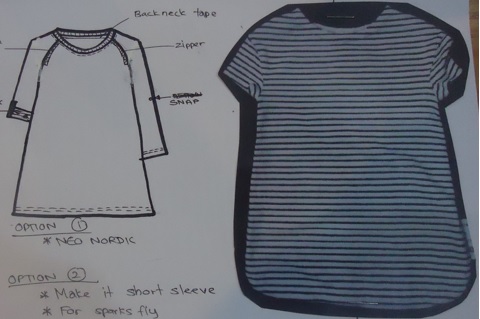 Back neck tape
zipper
SNAP
OPTION ①
* NEO NORDIC
OPTION ②
* Make it short sleeve
* For sparks fly